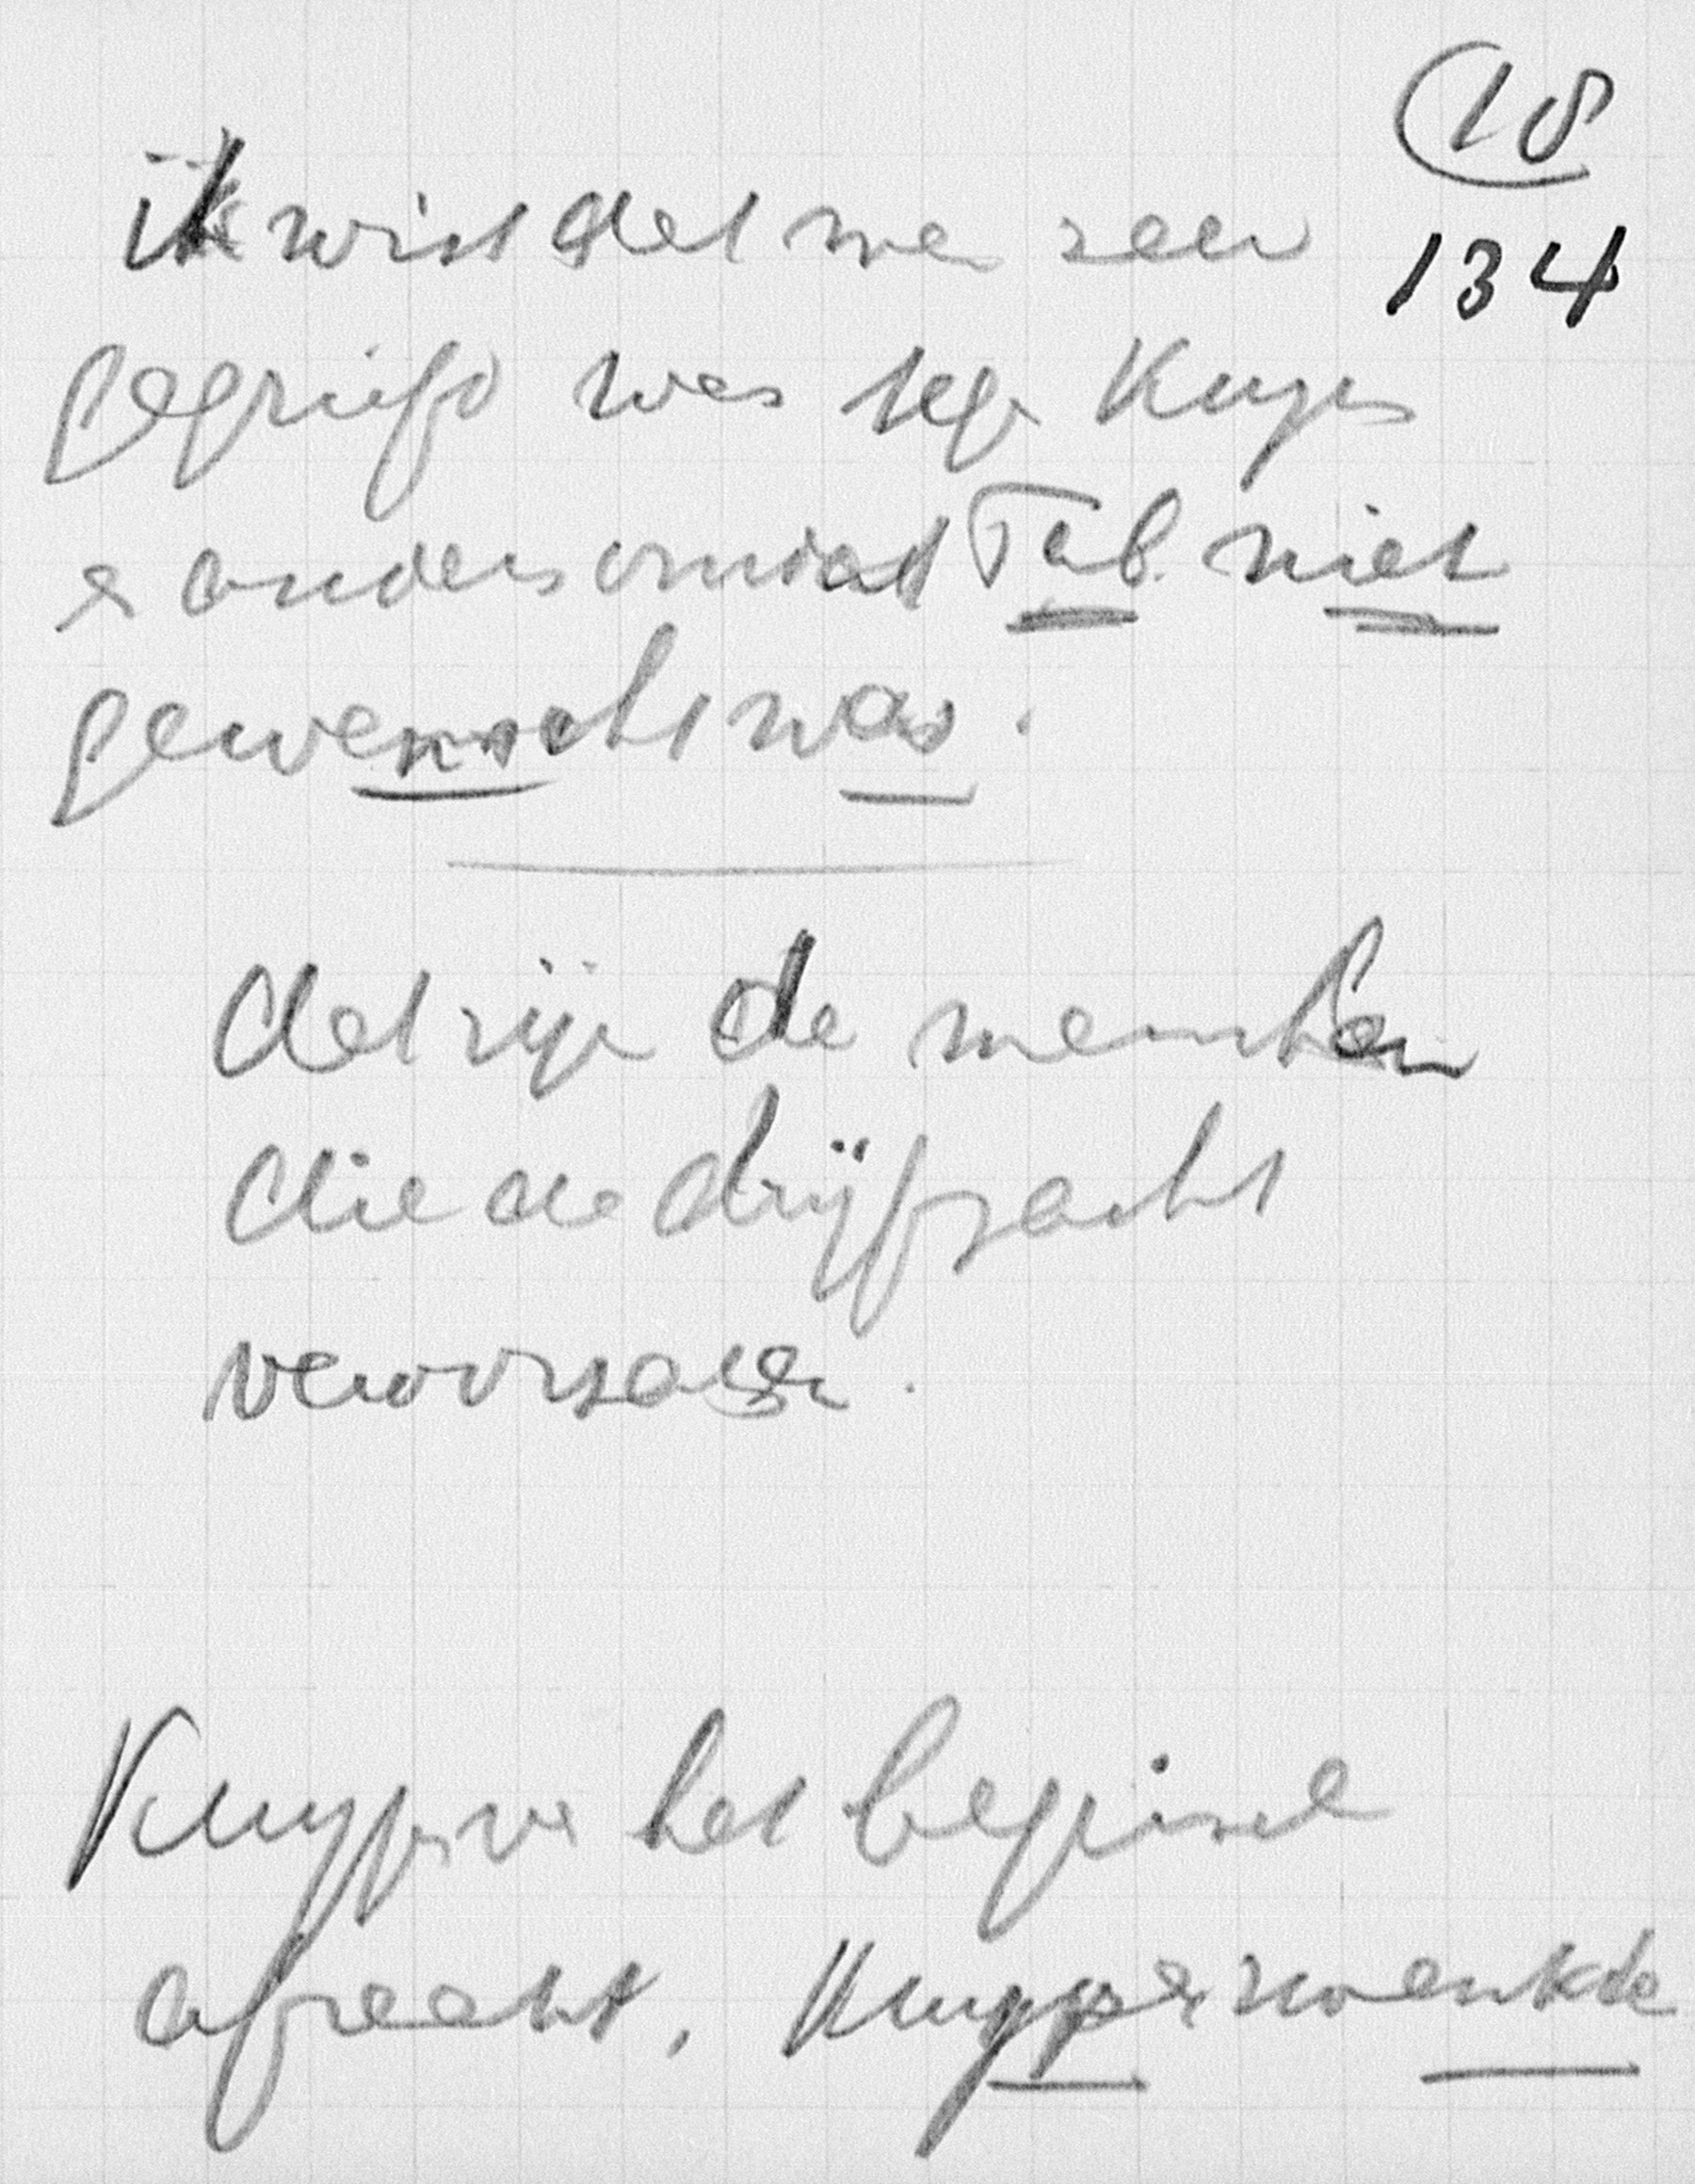 18
134
ik wist dat men zeer
gegriefd was Kuyper
& anders omdat Tal. niet
gewenscht was.
dat zijn de menschen
die de drijfjacht
veroorzaken.
Kuyper het beginsel
afrecht, Kuyper zwenkte